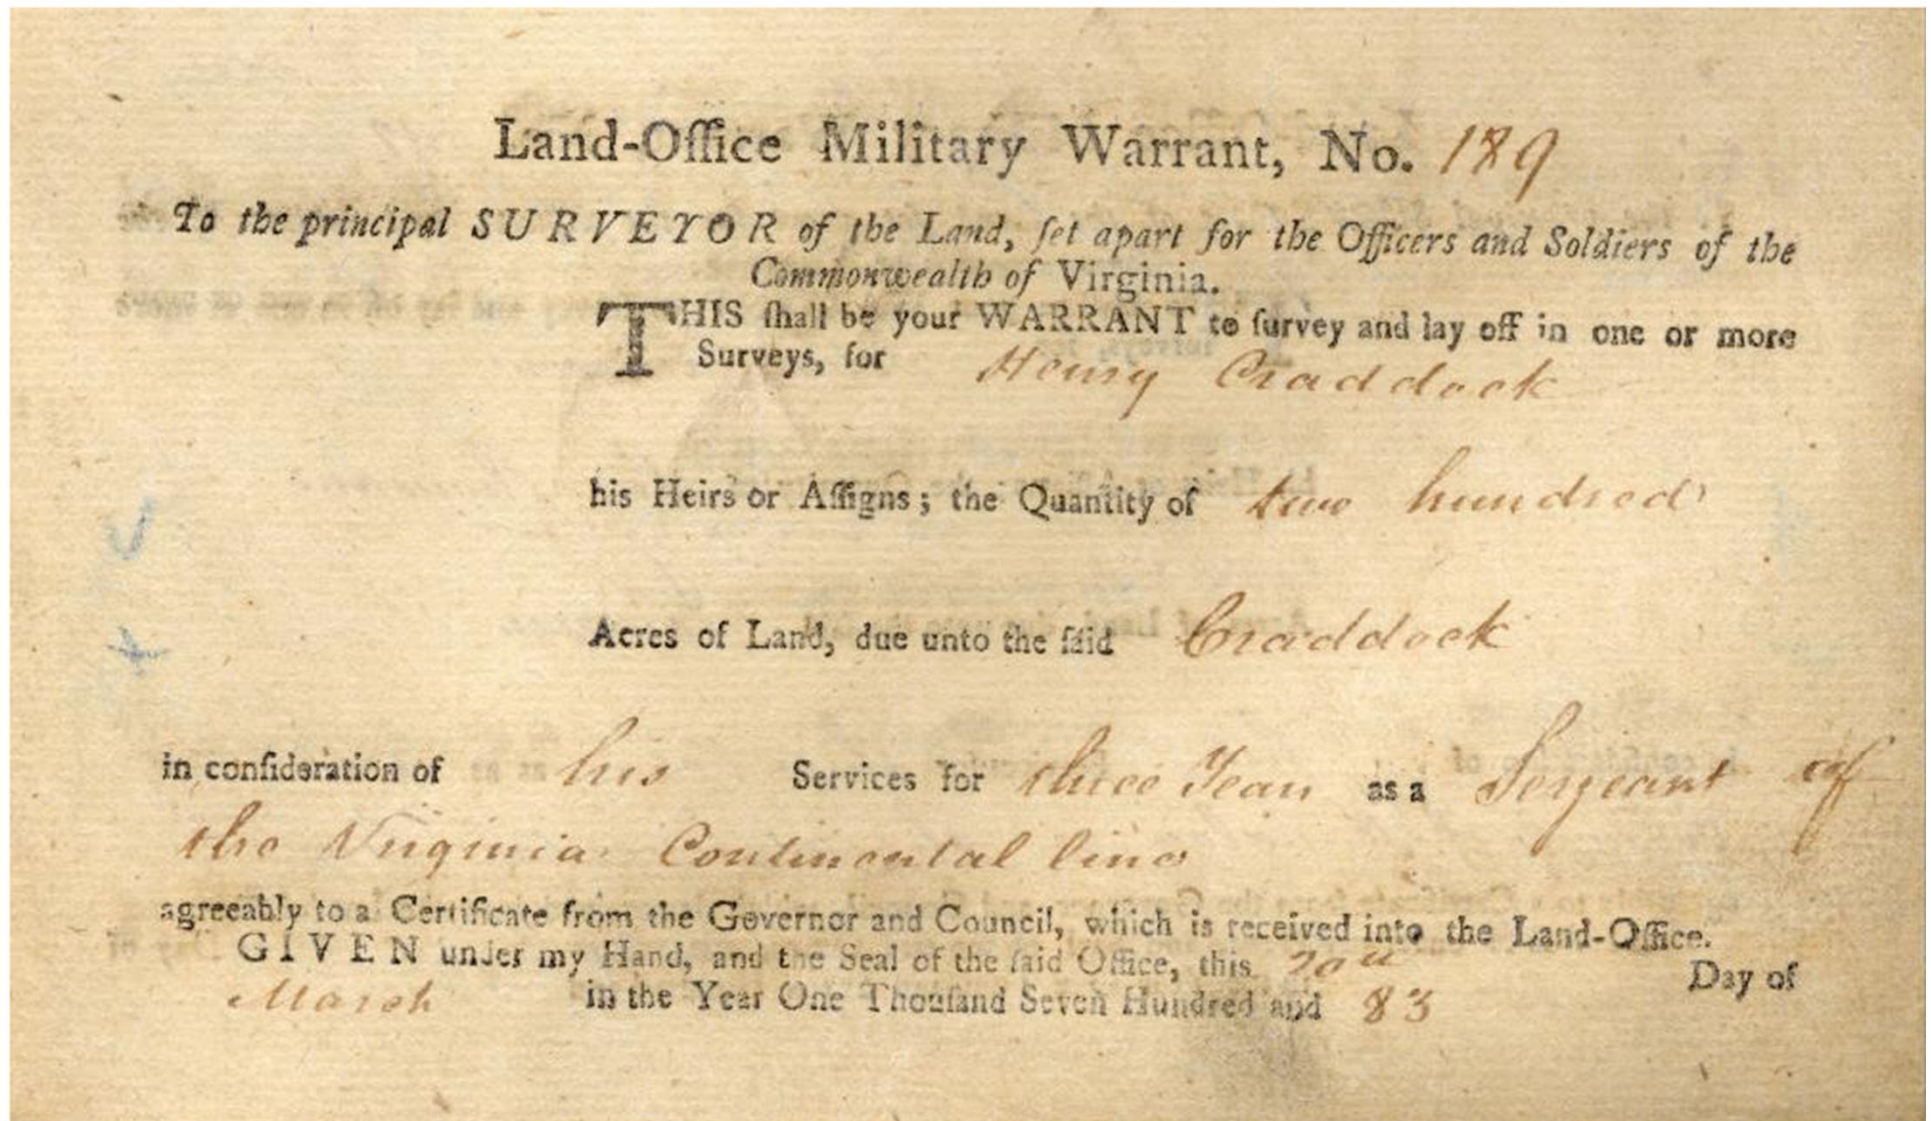 Land-Office Military Warrant, No. 189
To the principal SURVEYOR of the Land, ſet apart for the Officers and Soldiers of the
Commonwealth of Virginia.
THIS ſhall be your WARRANT to ſurvey and lay off in one or more
Surveys, for Henry Craddock
his Heirs or Aſſigns; the Quantity of two hundred
Acres of Land, due unto the ſaid Craddock
in conſideration of his Services for three Years as a Serjeant of
the Virginia Continental line
agreeably to a Certificate from the Governor and Council, which is received into the Land-Office.
GIVEN under my Hand, and the Seal of the ſaid Office, this Day of
March in the Year One Thouſand Seven Hundred and 83